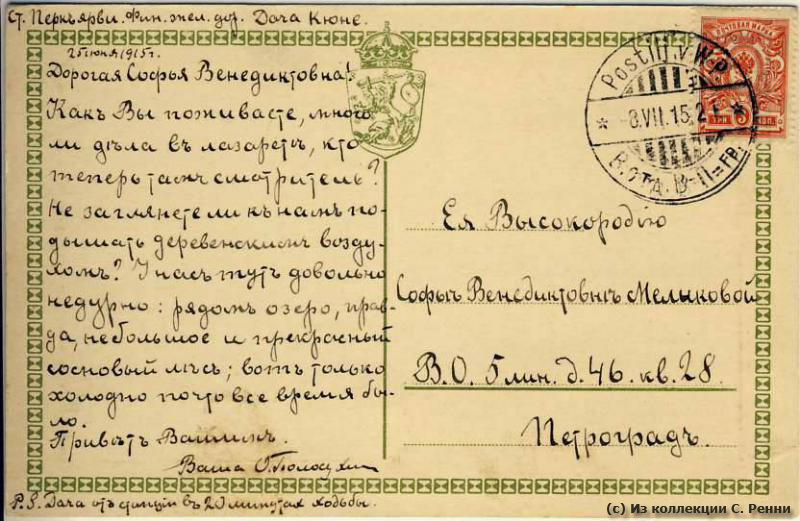 Ст. Перкъярви. Фин. жел. дор. Дача Кюне.
25 июня 1915 г.
Дорогая Софья Венедиктовна!
Какъ Вы поживаете, много
ли дѣла въ лазаретѣ, кто
теперь тамъ смотритель?
Не заглянете ли къ намъ по-
дышать деревенскимъ возду-
хомъ? У насъ тутъ довольно
недурно: рядомъ озеро, прав-
да, небольшое и прекрасный
сосновый лѣсъ; вотъ только
холодно почто все время бы-
ло.
Привѣтъ Вашимъ.
Ваша О.
P.S. Дача отъ станціи въ 20 минутахъ ходьбы.
ПОЧТОВАЯ МАРКА
3
ТРИ КОП.
Postilj. v. W.P.
8.VII.15
Ея Высокородію
Софьѣ Венедиктовнѣ Мелиховой
В.О. 5 лин. д. 46. кв. 28.
Петроградъ.
(c) Из коллекции С. Ренни